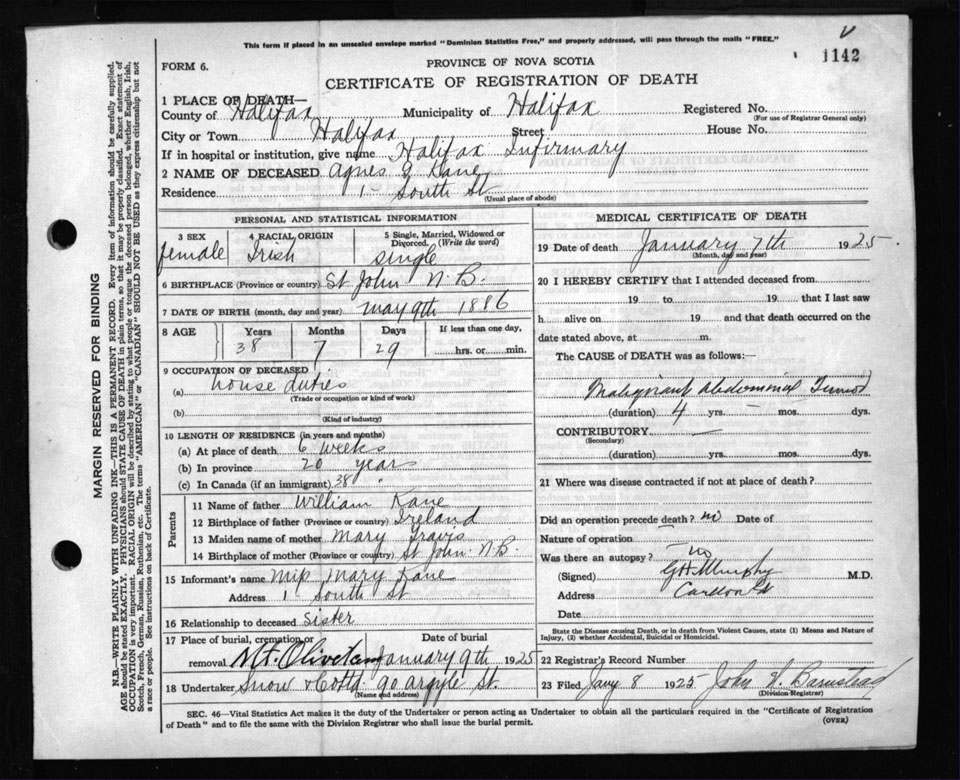 This form if placed in an unsealed envelope marked "Dominion Statistics Free," and properly addressed, will pass through the mails "FREE."
V
1142
FORM 6.
PROVINCE OF NOVA SCOTIA
CERTIFICATE OF REGISTRATION OF DEATH
1 PLACE OF DEATH—
County of Halifax Municipality of Halifax Registered No.
(For use of Registrar General only)
City or Town Halifax Street House No.
If in hospital or institution, give name Halifax Infirmary
2 NAME OF DECEASED Agnes Kane
Residence 1 - South St
(Usual place of abode)
PERSONAL AND STATISTICAL INFORMATION
3 SEX 4 RACIAL ORIGIN 5 Single, Married, Widowed or Divorced. (Write the word)
female Irish single
6 BIRTHPLACE (Province or country) St John N.B.
7 DATE OF BIRTH (month, day and year) May 9th 1886
8 AGE Years Months Days If less than one day,
38 7 29 hrs. or min.
9 OCCUPATION OF DECEASED
(a) house duties
(Trade or occupation or kind of work)
(b)
(Kind of industry)
10 LENGTH OF RESIDENCE (in years and months)
(a) At place of death 6 weeks
(b) In province 20 years
(c) In Canada (if an immigrant) 38 "
Parents
11 Name of father William Kane
12 Birthplace of father (Province or country) Ireland
13 Maiden name of mother Mary Travis
14 Birthplace of mother (Province or country) St John N.B.
15 Informant's name Miss Mary Kane
Address 1 South St
16 Relationship to deceased sister
17 Place of burial, cremation or removal Mt. Olivet Date of burial January 9th 1925
18 Undertaker Snow & Co Ltd 90 Argyle St.
(Name and address)
MEDICAL CERTIFICATE OF DEATH
19 Date of death January 7th 1925
(Month, day and year)
20 I HEREBY CERTIFY that I attended deceased from
19 to 19 that I last saw
h alive on 19 and that death occurred on the
date stated above, at m.
The CAUSE of DEATH was as follows:—
Malignant Abdominal Tumor
(duration) 4 yrs. — mos. dys.
CONTRIBUTORY —
(Secondary)
(duration) yrs. mos. dys.
21 Where was disease contracted if not at place of death?
Did an operation precede death? no Date of
Nature of operation
Was there an autopsy? no
(Signed) G H Murphy M.D.
Address
Date
State the Disease causing Death, or in death from Violent Causes, state (1) Means and Nature of
Injury, (2) whether Accidental, Suicidal or Homicidal.
22 Registrar's Record Number
23 Filed Jany 8 1925 John Barnstead
(Division-Registrar)
SEC. 46—Vital Statistics Act makes it the duty of the Undertaker or person acting as Undertaker to obtain all the particulars required in the "Certificate of Registration
of Death" and to file the same with the Division Registrar who shall issue the burial permit.
(OVER)
MARGIN RESERVED FOR BINDING
N.B.—WRITE PLAINLY WITH UNFADING INK—THIS IS A PERMANENT RECORD. Every item of information should be carefully supplied.
AGE should be stated EXACTLY. PHYSICIANS should STATE CAUSE OF DEATH in plain terms, so that it may be properly classified. Exact statement of
OCCUPATION is very important. RACIAL ORIGIN will be described by stating to what people or tongue the deceased person belonged, whether English, Irish,
Scotch, French, German, Russian, Ruthenian, etc. The terms "AMERICAN" or "CANADIAN" SHOULD NOT BE USED as they express citizenship but not
a race or people. See instructions on back of Certificate.